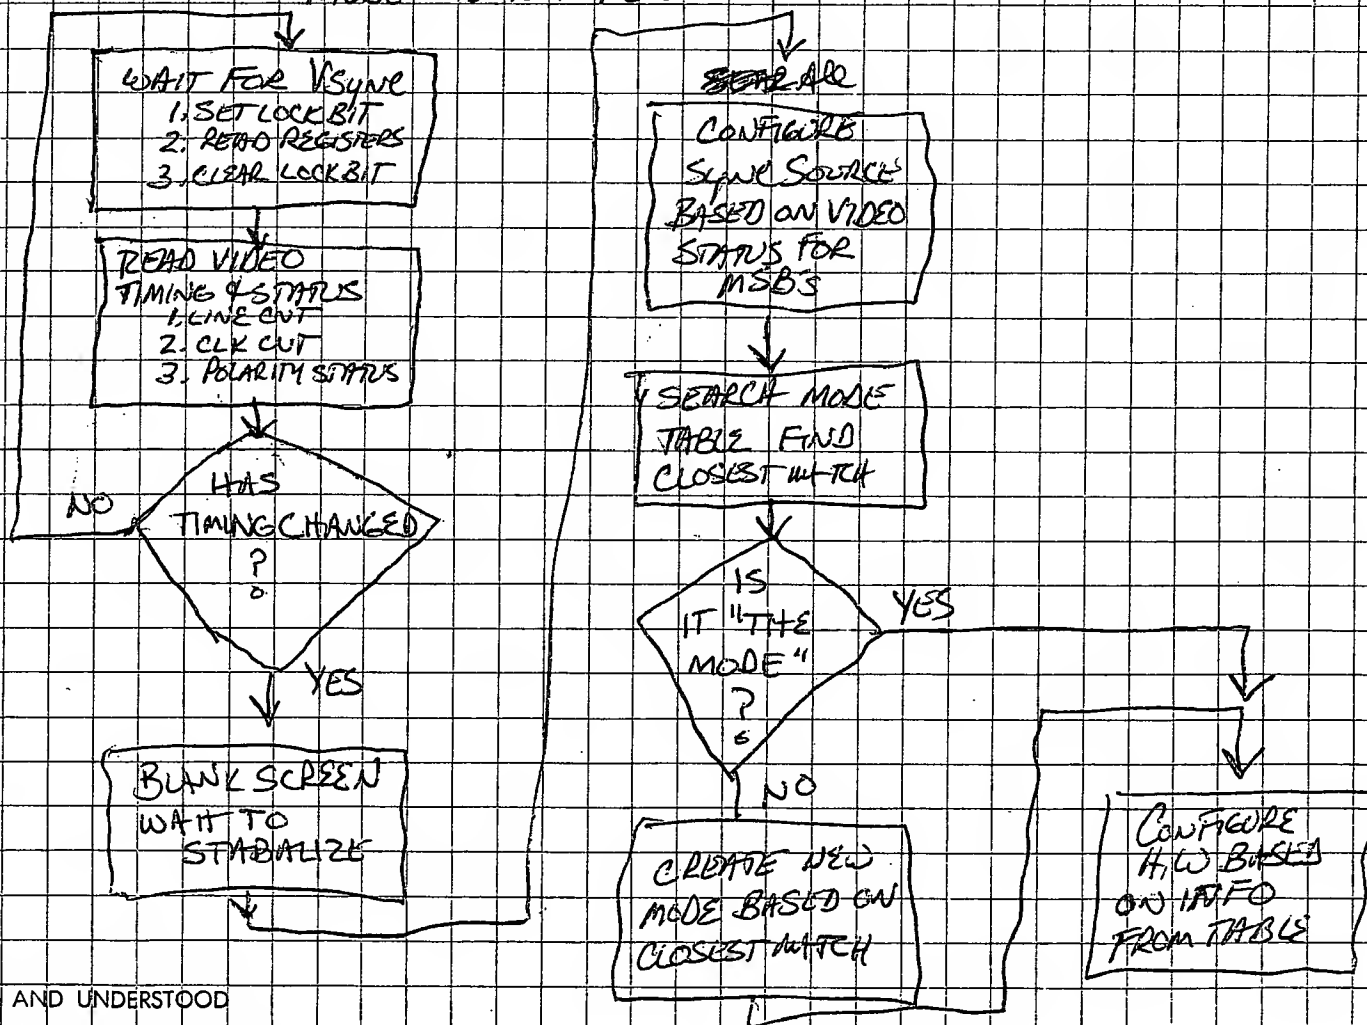 WAIT FOR VSync
1. SET LOCK BIT
2. READ REGISTERS
3. CLEAR LOCK BIT
READ VIDEO
TIMING & STATUS
1. LINE CNT
2. CLK CNT
3. POLARITY STATUS
HAS
TIMING CHANGED
?
NO
YES
BLANK SCREEN
WAIT TO
STABALIZE
CONFIGURE
Sync SOURCE
BASED ON VIDEO
STATUS FOR
MSB'S
SEARCH MODE
TABLE FIND
CLOSEST MATCH
IS
IT "THE
MODE"
?
YES
NO
CREATE NEW
MODE BASED ON
CLOSEST MATCH
CONFIGURE
H/W BASED
ON INFO
FROM TABLE
AND UNDERSTOOD